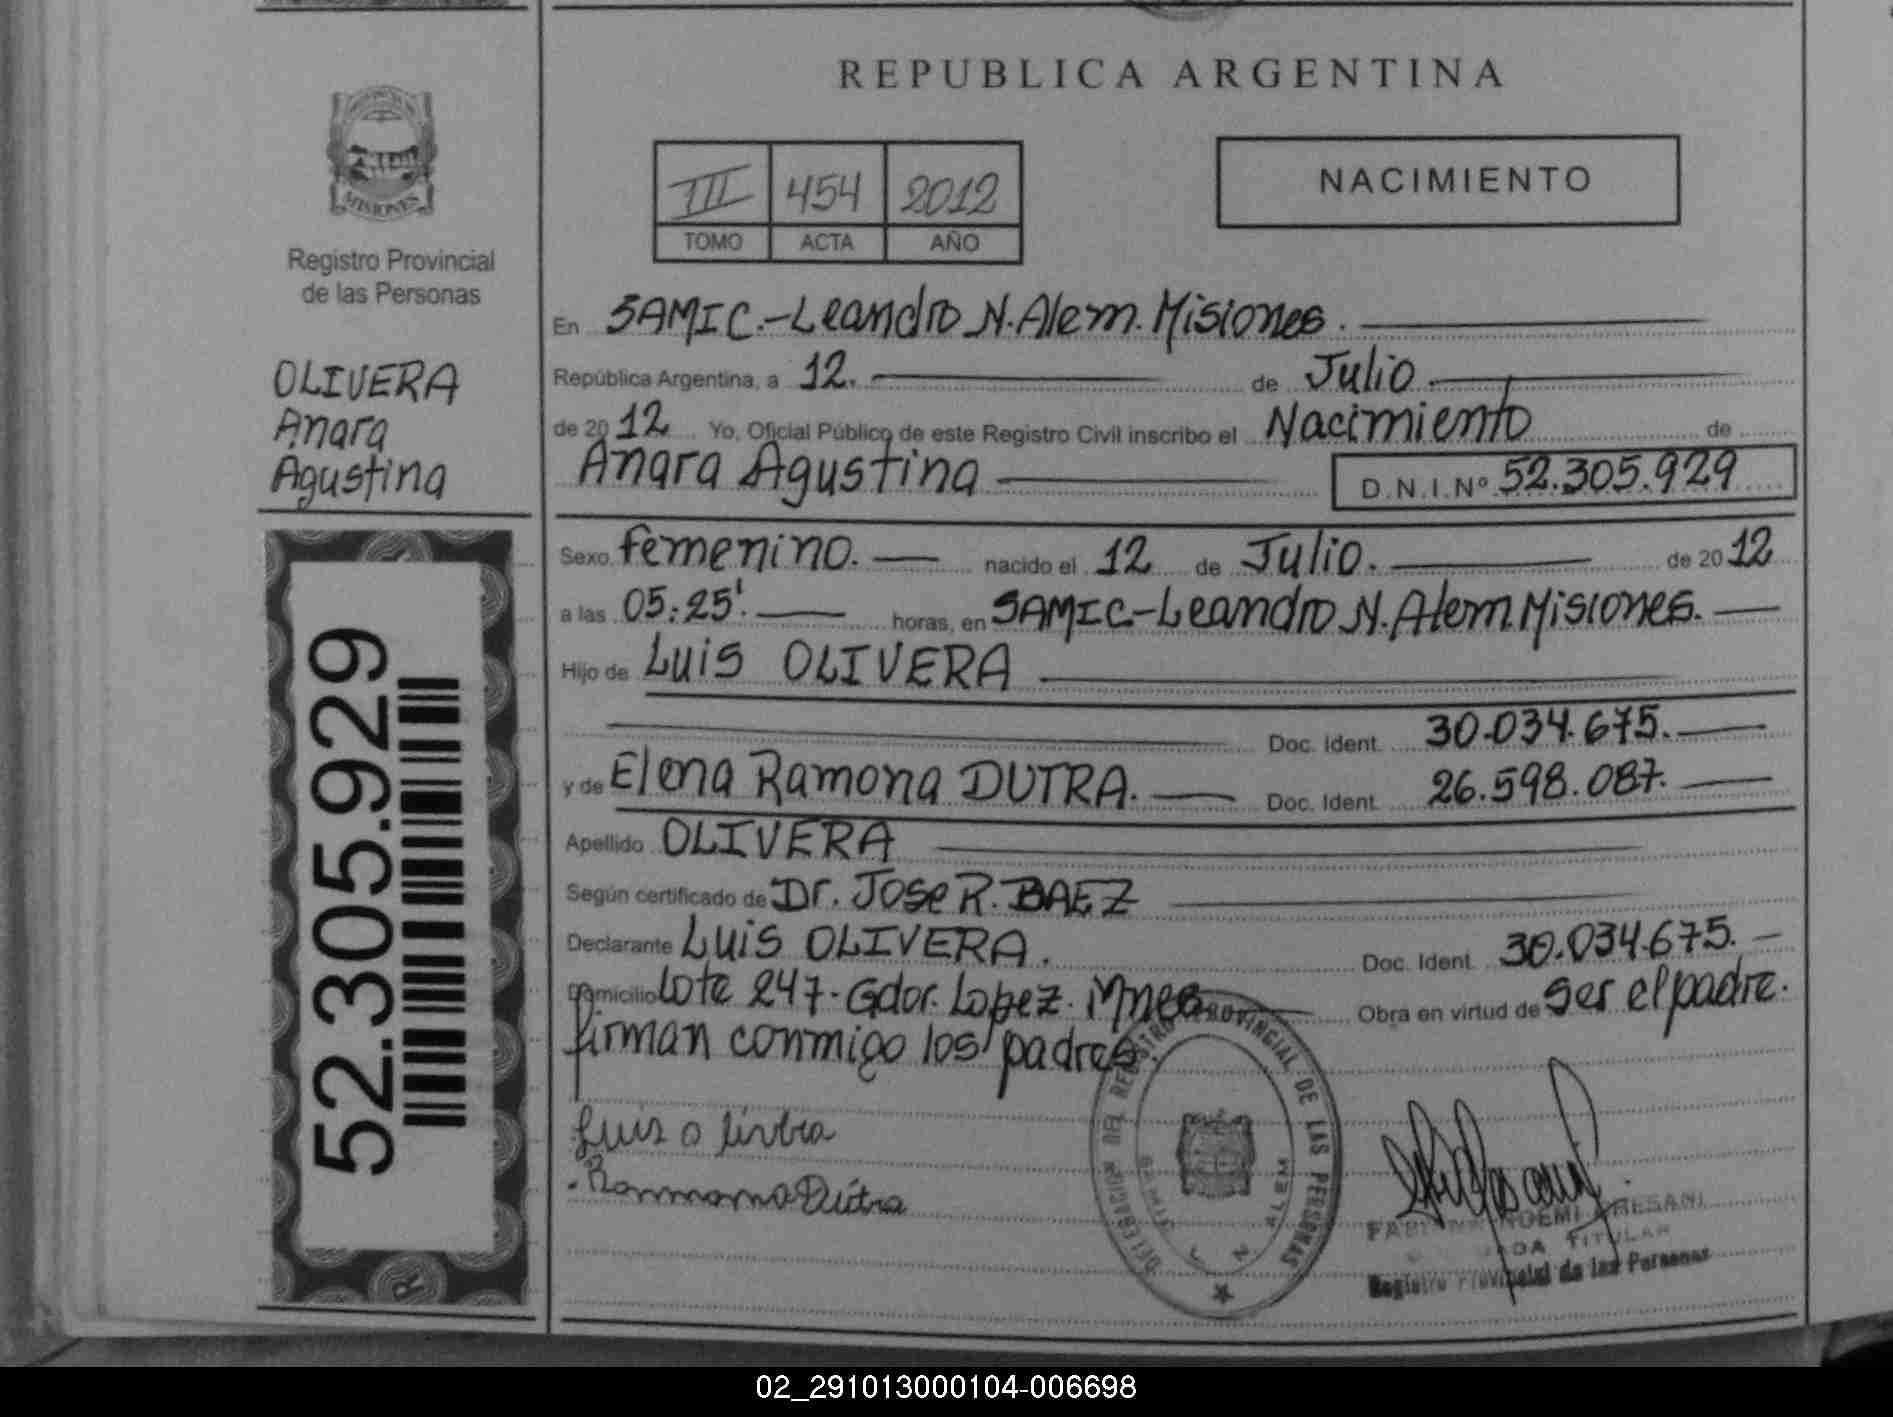 REPUBLICA ARGENTINA
MISIONES
Registro Provincial
de las Personas
III 454 2012
TOMO ACTA AÑO
NACIMIENTO
OLIVERA
Anara
Agustina
52.305.929
En SAMIC.-Leandro N. Alem. Misiones.
República Argentina, a 12. de Julio
de 2012 Yo, Oficial Público de este Registro Civil inscribo el Nacimiento de
Anara Agustina D.N.I.Nº 52.305.929
Sexo femenino. nacido el 12 de Julio. de 2012
a las 05:25'. horas, en SAMIC-Leandro N. Alem. Misiones.
Hijo de Luis OLIVERA
Doc. Ident. 30.034.675.
y de Elena Ramona DUTRA. Doc. Ident. 26.598.087.
Apellido OLIVERA
Según certificado de Dr. Jose R. BAEZ
Declarante Luis OLIVERA. Doc. Ident. 30.034.675.
Domicilio Lote 247. Gdor. Lopez. Mnes Obra en virtud de ser el padre.
firman conmigo los padres
DELEGACION DEL REGISTRO PROVINCIAL DE LAS PERSONAS
L. N. ALEM
TITULAR
Registro Provincial de las Personas
02_291013000104-006698